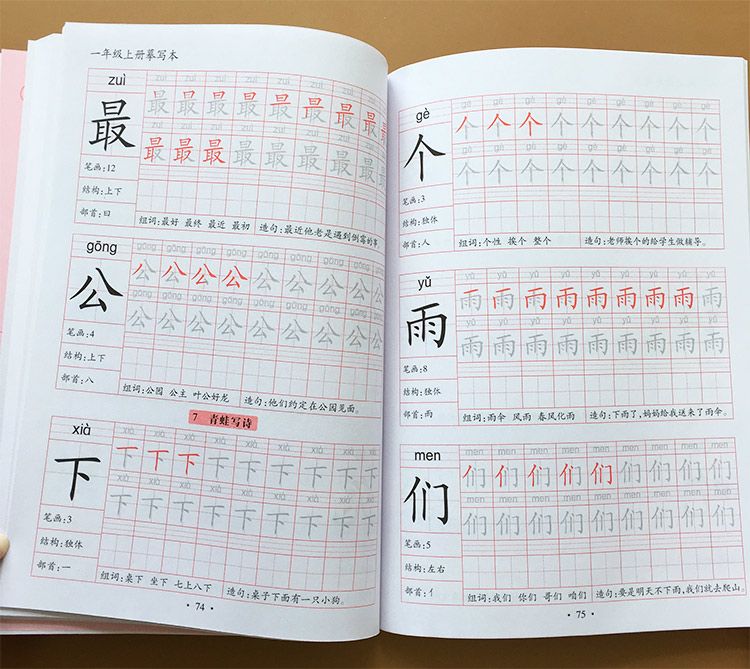 一年级上册摹写本
zuì
zuì zuì zuì zuì zuì zuì zuì zuì
最
最 最 最 最 最 最 最 最
zuì zuì zuì zuì zuì zuì zuì zuì
最 最 最 最 最 最 最 最
笔画:12
结构:上下
部首:曰
组词:最好 最终 最近 最初 造句:最近他老是遇到倒霉的事。
gōng
gōng gōng gōng gōng gōng gōng gōng gōng
公
公 公 公 公 公 公 公 公
gōng gōng gōng gōng gōng gōng gōng gōng
公 公 公 公 公 公 公 公
笔画:4
结构:上下
部首:八
组词:公园 公主 叶公好龙 造句:他们约定在公园见面。
7 青蛙写诗
xià
xià xià xià xià xià xià xià xià
下
下 下 下 下 下 下 下 下 下
xià xià xià xià xià xià xià xià
下 下 下 下 下 下 下 下 下
笔画:3
结构:独体
部首:一
组词:桌下 坐下 七上八下 造句:桌子下面有一只小狗。
· 74 ·
gè
gè gè gè gè gè gè gè gè gè
个
个 个 个 个 个 个 个 个 个
gè gè gè gè gè gè gè gè gè
个 个 个 个 个 个 个 个 个
笔画:3
结构:独体
部首:人
组词:个性 挨个 整个 造句:老师挨个的给学生做辅导。
yǔ
yǔ yǔ yǔ yǔ yǔ yǔ yǔ yǔ yǔ
雨
雨 雨 雨 雨 雨 雨 雨 雨 雨
yǔ yǔ yǔ yǔ yǔ yǔ yǔ yǔ yǔ
雨 雨 雨 雨 雨 雨 雨 雨 雨
笔画:8
结构:独体
部首:雨
组词:雨伞 风雨 春风化雨 造句:下雨了,妈妈给我送来了雨伞。
men
men men men men men men men men men
们
们 们 们 们 们 们 们 们 们
men men men men men men men men men
们 们 们 们 们 们 们 们 们
笔画:5
结构:左右
部首:亻
组词:我们 你们 哥们 咱们 造句:要是明天不下雨,我们就去爬山。
· 75 ·